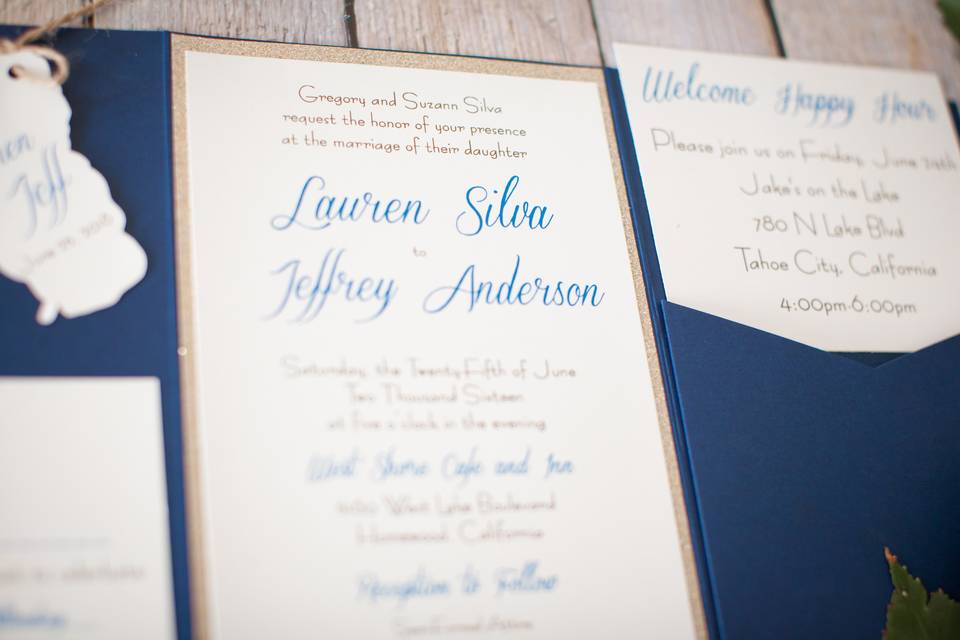 Jeff
June 25 2016
Gregory and Suzann Silva
request the honor of your presence
at the marriage of their daughter
Lauren Silva
to
Jeffrey Anderson
Saturday, the Twenty-Fifth of June
Two Thousand Sixteen
at five o'clock in the evening
West Shore Cafe and Inn
West Lake Boulevard
Homewood, California
Reception to Follow
Welcome Happy Hour
Please join us on Friday, June
Jake's on the Lake
780 N Lake Blvd
Tahoe City, California
4:00pm-6:00pm